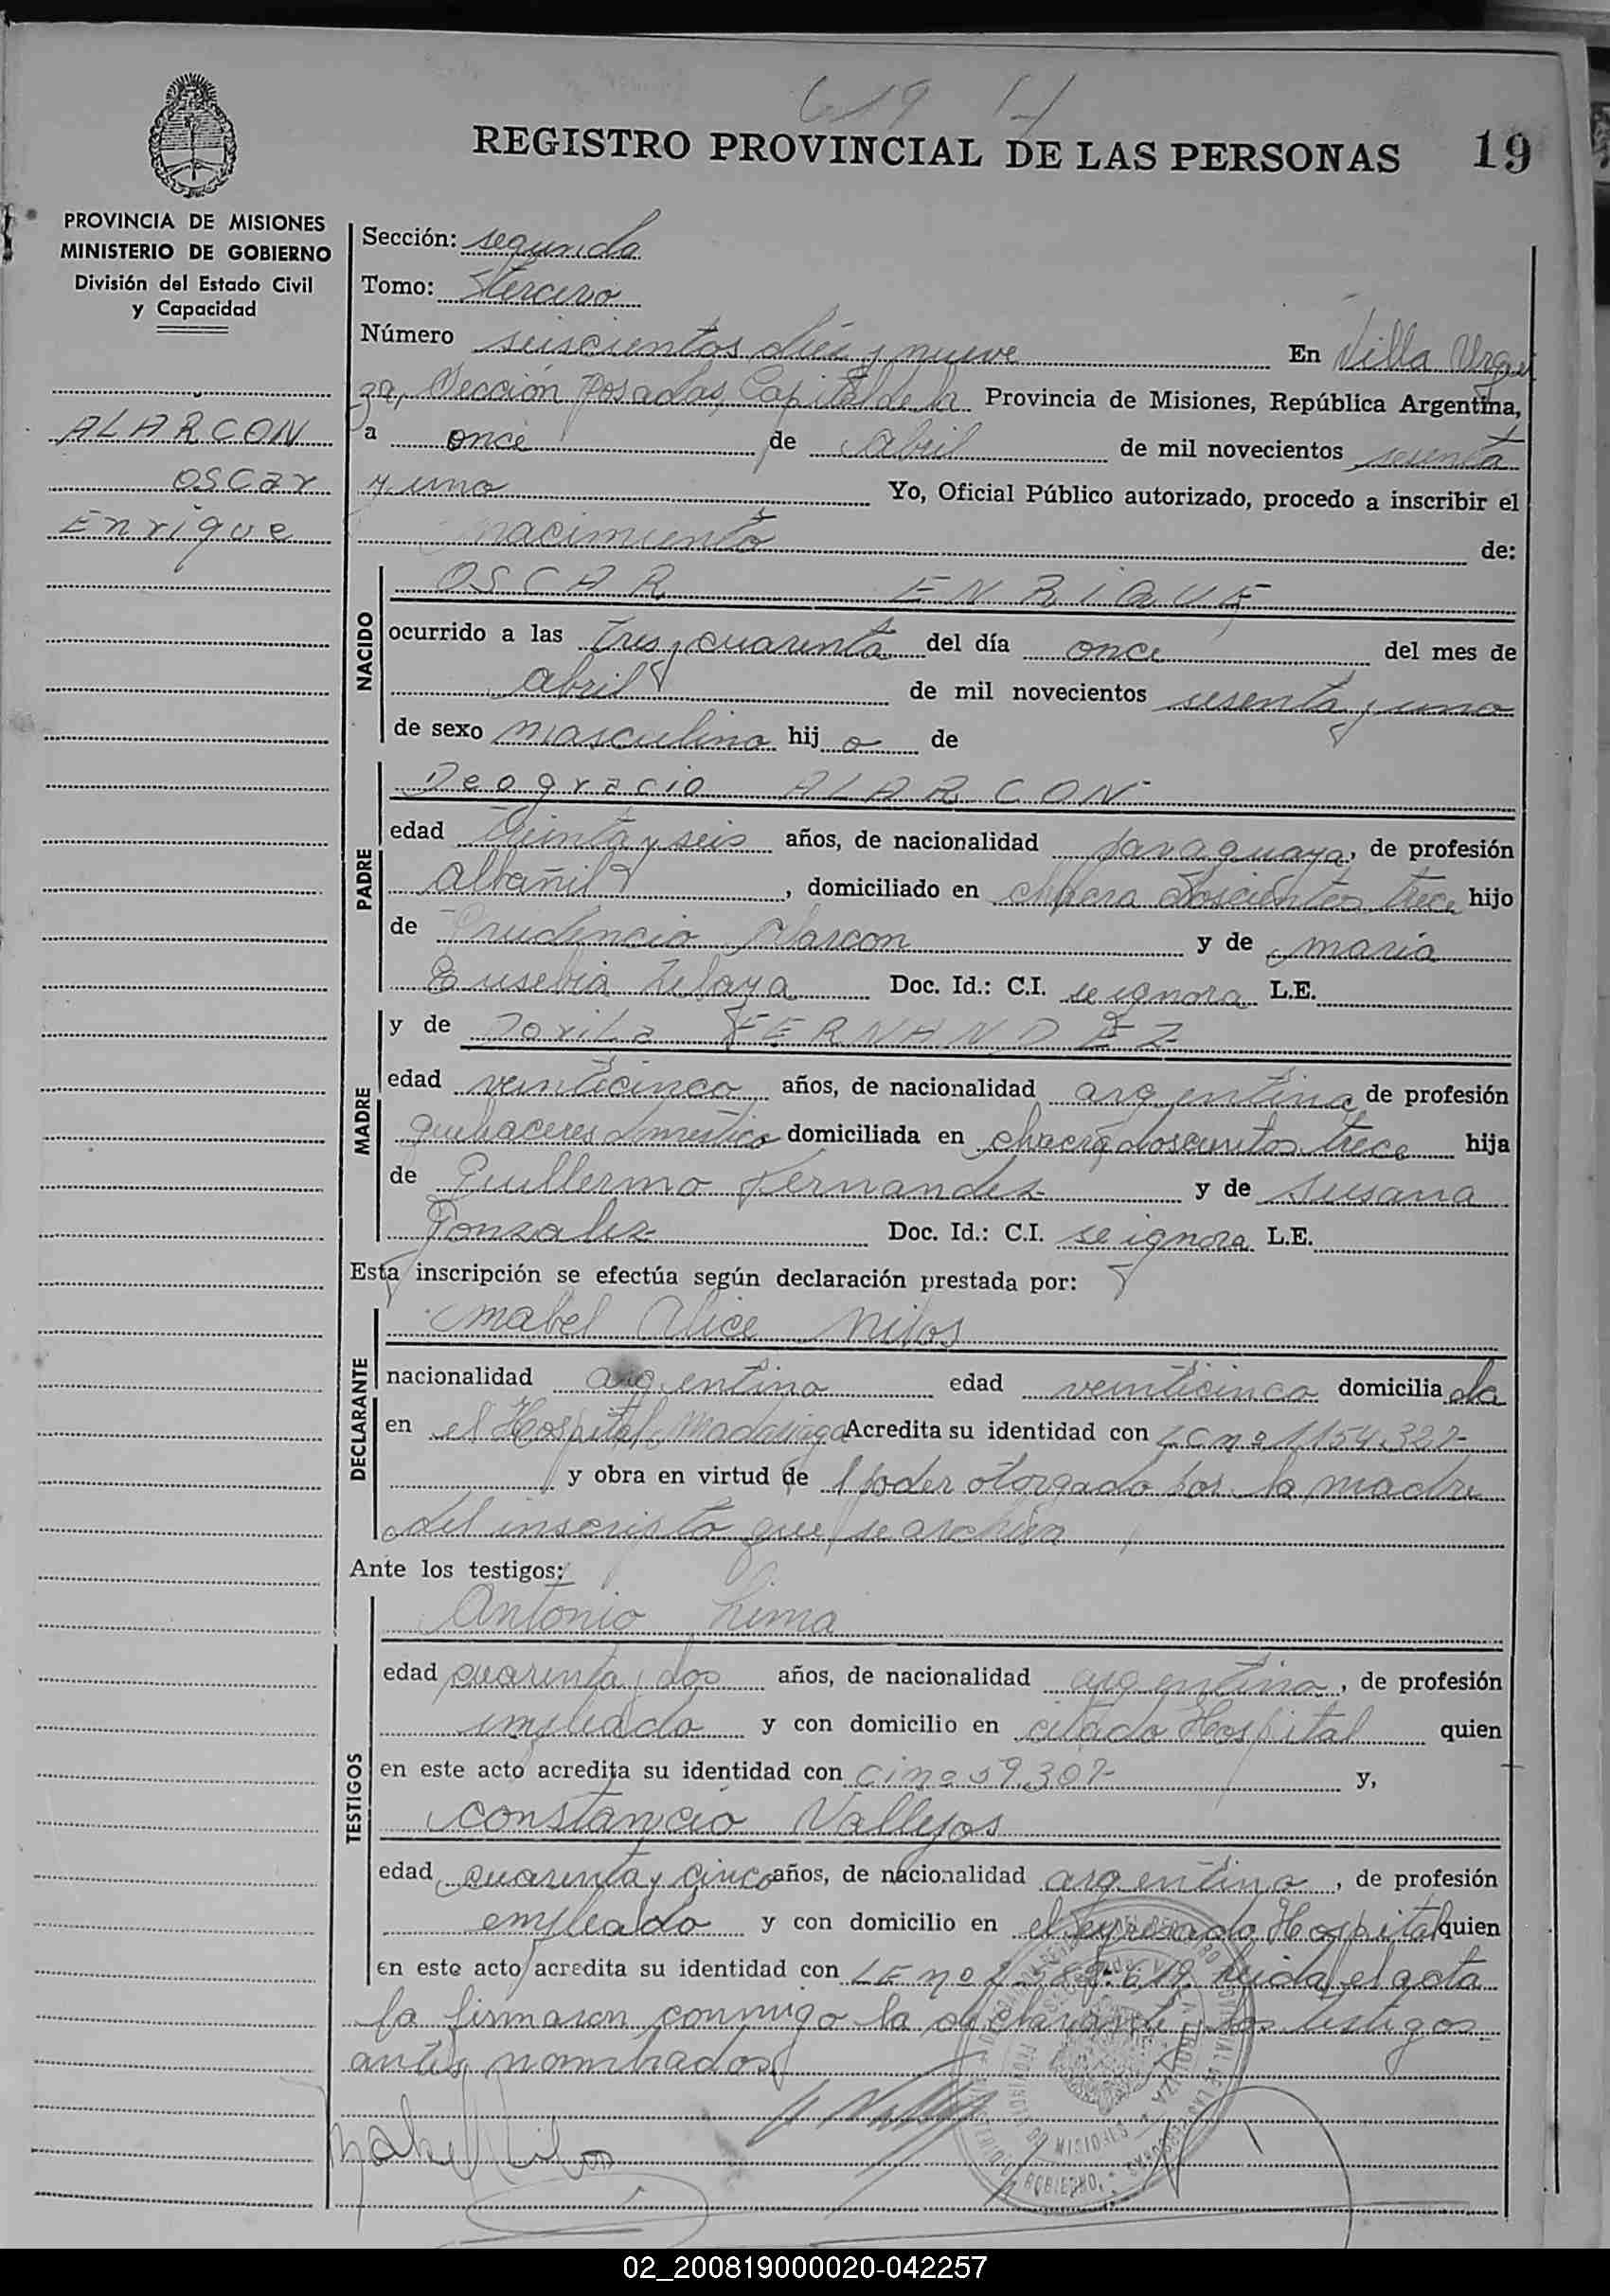 619
REGISTRO PROVINCIAL DE LAS PERSONAS 19
PROVINCIA DE MISIONES
MINISTERIO DE GOBIERNO
División del Estado Civil
y Capacidad
ALARCON
OSCAR
Enrique
Sección: segunda
Tomo: tercero
Número seiscientos diez y nueve En Villa Urqui
za, Sección Posadas, Capital de la Provincia de Misiones, República Argentina,
a once de abril de mil novecientos sesenta
y uno Yo, Oficial Público autorizado, procedo a inscribir el
nacimiento de:
NACIDO
OSCAR ENRIQUE
ocurrido a las tres y cuarenta del día once del mes de
abril de mil novecientos sesenta y uno
de sexo masculino hijo de
PADRE
Deogracio ALARCON
edad treinta y seis años, de nacionalidad paraguaya, de profesión
albañil, domiciliado en chacra doscientos trece hijo
de Prudencio Alarcon y de maria
Eusebia Zelaya Doc. Id.: C.I. se ignora L.E.
MADRE
y de Dorila FERNANDEZ
edad veinticinco años, de nacionalidad argentina de profesión
quehaceres domestico domiciliada en chacra doscientos trece hija
de Guillermo Fernandez y de Susana
Gonzalez Doc. Id.: C.I. se ignora L.E.
Esta inscripción se efectúa según declaración prestada por:
DECLARANTE
Mabel Alice Milos
nacionalidad argentina edad veinticinco domiciliada
en el Hospital Madariaga Acredita su identidad con LC nº 1.154.327-
y obra en virtud de poder otorgado por la madre
del inscripto que se archiva
Ante los testigos:
TESTIGOS
Antonio Lima
edad cuarenta y dos años, de nacionalidad argentina, de profesión
empleado y con domicilio en citado Hospital quien
en este acto acredita su identidad con CI nº 59.307- y,
Constancio Vallejos
edad cuarenta y cinco años, de nacionalidad argentina, de profesión
empleado y con domicilio en el expresado Hospital quien
en este acto acredita su identidad con LE nº leida el acta
la firmaron conmigo la declarante y los testigos
antes nombrados
Mabel Milos
02_200819000020-042257